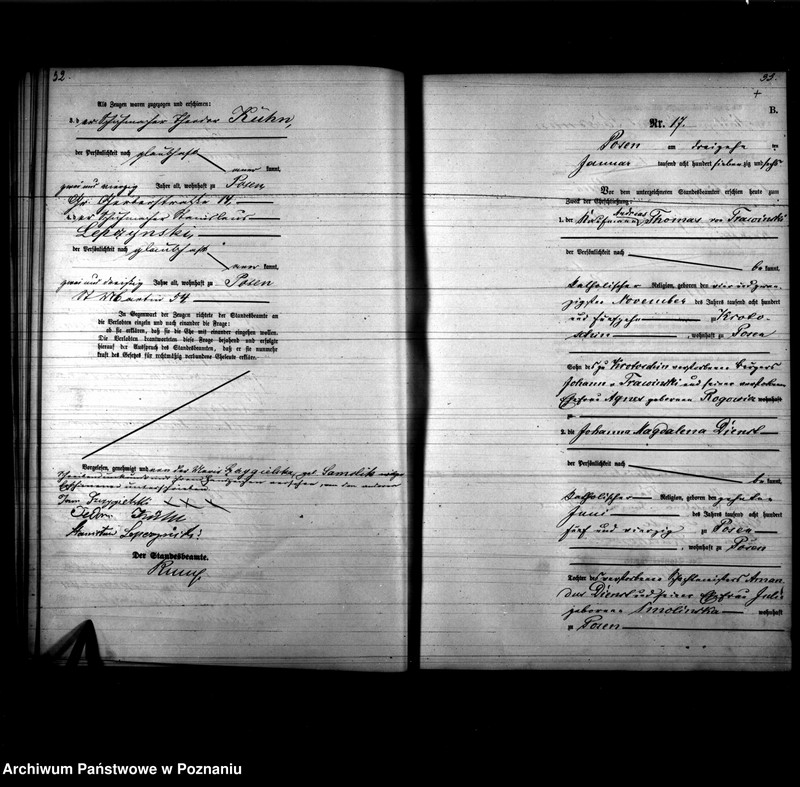 32.
Als Zeugen waren zugezogen und erschienen:
3. der Schuhmacher Theodor Kühn,
der Persönlichkeit nach glaubhaft
kannt,
zwei und vierzig Jahre alt, wohnhaft zu Posen
Gr. Gerberstraße 14.
4. der Schuhmacher Stanislaus
Lepczynski,
der Persönlichkeit nach glaubhaft
kannt,
zwei und dreißig Jahre alt, wohnhaft zu Posen
St Martin 54
In Gegenwart der Zeugen richtete der Standesbeamte an
die Verlobten einzeln und nach einander die Frage:
ob sie erklären, daß sie die Ehe mit einander eingehen wollen.
Die Verlobten beantworteten diese Frage bejahend und erfolgte
hierauf der Ausspruch des Standesbeamten, daß er sie nunmehr
kraft des Gesetzes für rechtmäßig verbundene Eheleute erkläre.
Vorgelesen, genehmigt und von der Maria geb. Samolik
Handzeichen versehen von den anderen
Erschienenen unterschrieben
Jan XXX
Stanisław
Der Standesbeamte.
33.
+
B.
Nr. 17.
Posen am dreizehn ten
Januar tausend acht hundert sieben zig und sechs
Vor dem unterzeichneten Standesbeamten erschien heute zum
Zweck der Eheschließung:
1. der Kaufmann Andreas Thomas von Trawinski
der Persönlichkeit nach
be kannt,
katholischer Religion, geboren den vier und zwan-
zigsten November des Jahres tausend acht hundert
und fünfzehn zu Kroto-
schin, wohnhaft zu Posen
Sohn des zu Krotoschin verstorbenen Bürgers
Johann v Trawinski und seiner verstorbenen
Ehefrau Agnes geborenen Rogowicz wohnhaft
zu
2. die Johanna Magdalena Dienst
der Persönlichkeit nach
be kannt,
katholischer Religion, geboren den zehnten
Juni des Jahres tausend acht hundert
fünf und vierzig zu Posen
, wohnhaft zu Posen
Tochter des verstorbenen Aman-
dus Dienst und seiner Ehefrau Julie
geborene Smolinska wohnhaft
zu Posen
Archiwum Państwowe w Poznaniu